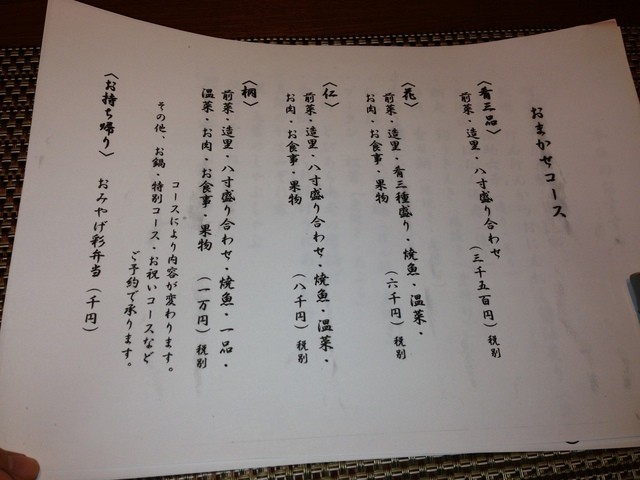 おまかせコース
〈肴三品〉
前菜・造里・八寸盛り合わせ(三千五百円)税別
〈花〉
前菜・造里・肴三種盛り・焼魚・温菜・
お肉・お食事・果物(六千円)税別
〈仁〉
前菜・造里・八寸盛り合わせ・焼魚・温菜・
お肉・お食事・果物(八千円)税別
〈桐〉
前菜・造里・八寸盛り合わせ・焼魚・一品・
温菜・お肉・お食事・果物(一万円)税別
コースにより内容が変わります。
その他、お鍋・特別コース・お祝いコースなど
ご予約で承ります。
〈お持ち帰り〉おみやげ彩弁当(千円)